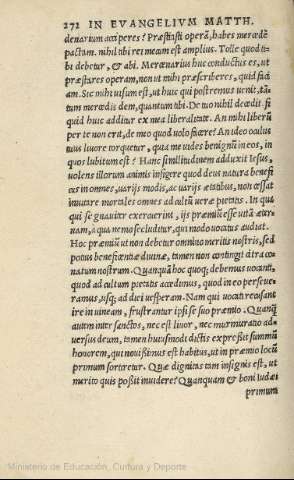 272 IN EVANGELIVM MATTH.
denarium acciperes? Præstitisti operã, habes mercedẽ
pactam. nihil tibi rei meum est amplius. Tolle quod ti-
bi debetur, & abi. Mercenarius huc conductus es, ut
præstares operam, non ut mihi præscriberes, quid faci
am. Sic mihi uisum est, ut huic qui postremus uenit, tã-
tum mercedis dem, quantum tibi. De tuo nihil decedit. si
quid huic additur ex mea liberalitate. An mihi liberũ
per te non erit, de meo quod uolo facere? An ideo oculus
tuus liuore torquetur, quia me uides benignũ in eos, in
quos lubitum est? Hanc similitudinem adduxit Iesus,
uolens illorum animis infigere quod deus natura benefi
cus in omnes, uarijs modis, ac uarijs ætatibus, non cessat
inuitare mortales omnes ad cultũ ueræ pietatis. In qua
qui se gnauiter exercuerint, ijs præmiũ esse uitã æter-
nam, a qua nemo secludetur, qui modo uocatus audiat.
Hoc præmiũ ut non debetur omnino meritis nostris, sed
potius beneficentiæ diuinæ, tamen non contingit citra co
natum nostrum. Quanquã hoc quoq; debemus uocanti,
quod ad cultum pietatis accedimus, quod in eo perseue
ramus, usq; ad diei uesperam. Nam qui uocati recusant
ire in uineam, frustrantur ipsi se suo præmio. Quanq̃
autem inter sanctos, nec est liuor, nec murmuratio ad-
uersus deum, tamen huiusmodi dictis expressit summũ
honorem, qui nouissimus est habitus, ut in præmio locũ
primum sortiretur. Quæ dignitas tam insignis est, ut
merito quis possit inuidere? Quanquam & boni Iudæi
primum
Ministerio de Educación, Cultura y Deporte